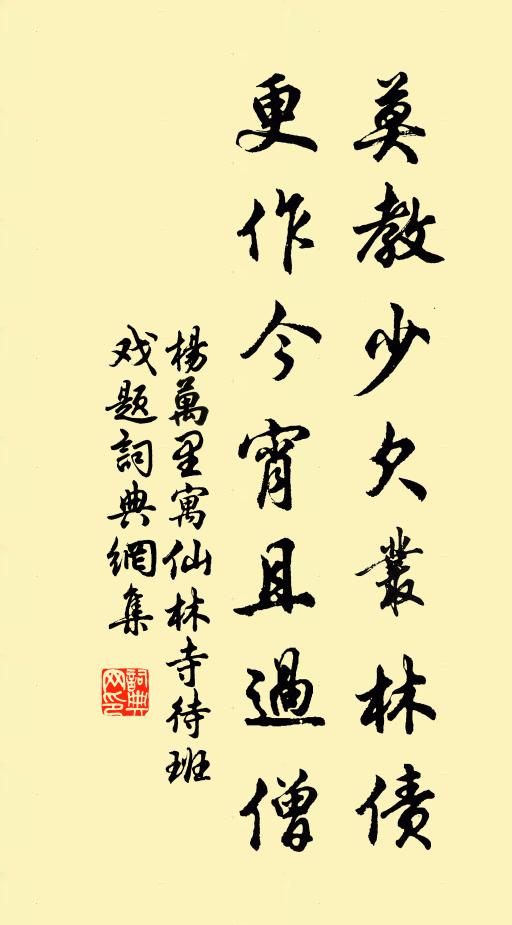 莫教少欠叢林債
更作今宵且過僧
楊萬里寓仙林寺待班
戏题詞典網集
詞典网印